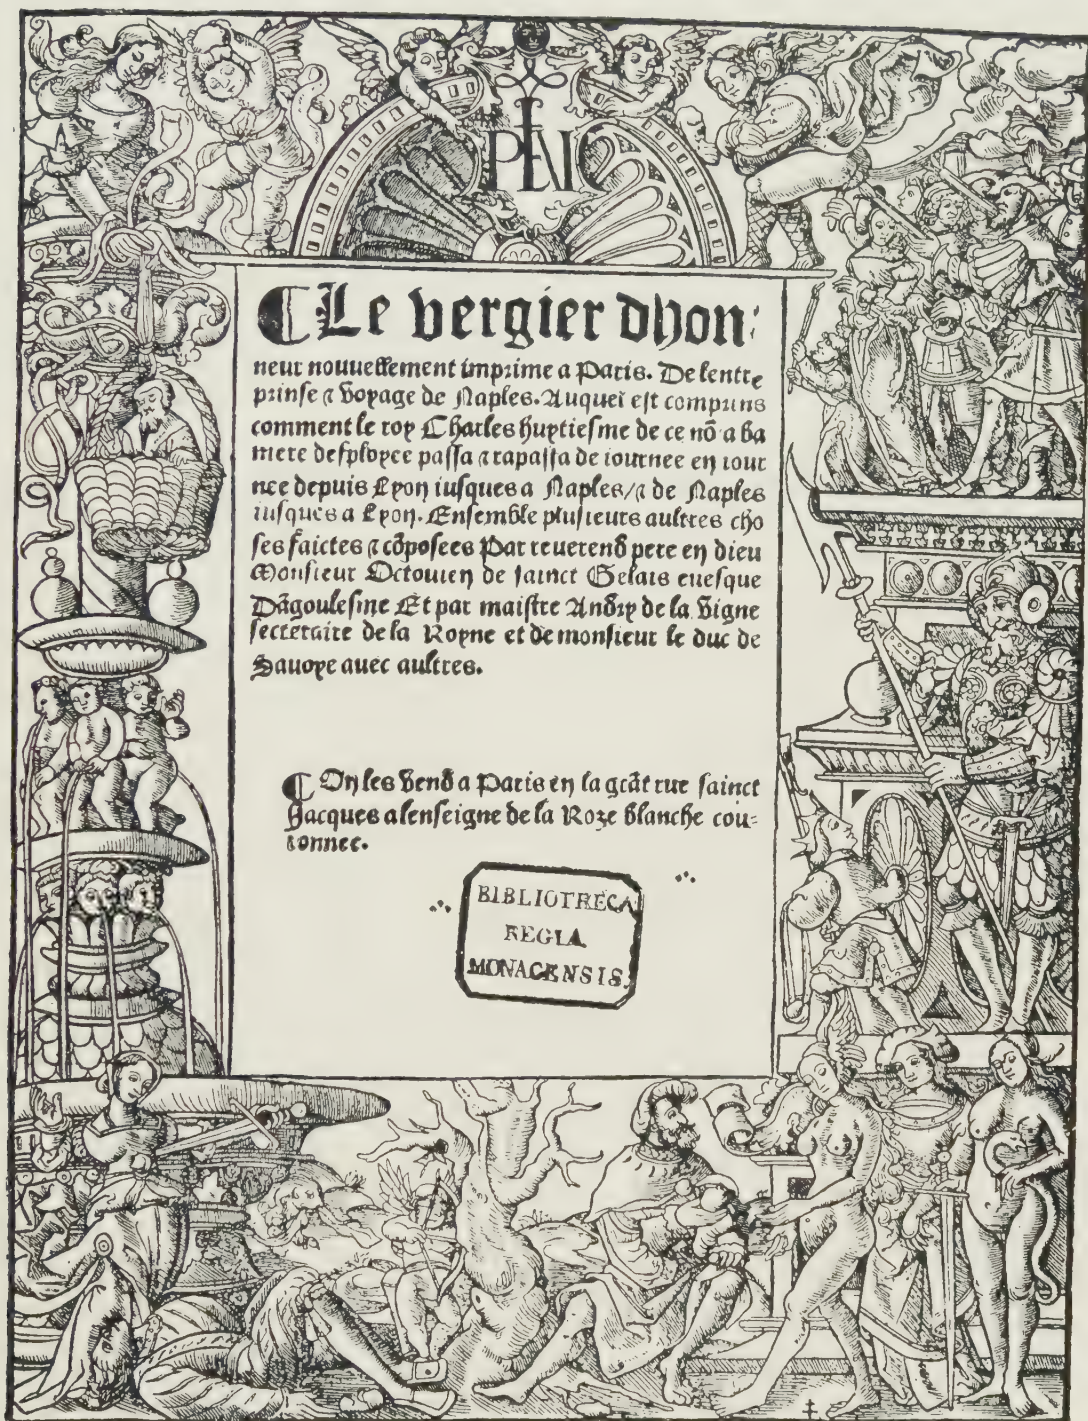 PENIC
⸿Le vergier dhon:
neur nouuellement imprime a Paris. De lentre
prinse ⁊ voyage de Naples. Auquel est comprins
comment le roy Charles huytiesme de ce nō a ba
niere desployee passa ⁊ rapassa de iournee en iour
nee depuis Lyon iusques a Naples/⁊ de Naples
iusques a Lyon. Ensemble plusieurs aultres cho
ses faictes ⁊ cōposees Par reuerend pere en dieu
Monsieur Octouien de sainct Gelais euesque
Dāgoulesme Et par maistre Andry de la vigne
secretaire de la Royne et de monsieur le duc de
Sauoye auec aultres.
⸿ On les vend a Paris en la grāt rue sainct
Jacques a lenseigne de la Roze blanche cou-
ronnee.
BIBLIOTHECA
REGIA
MONACENSIS.